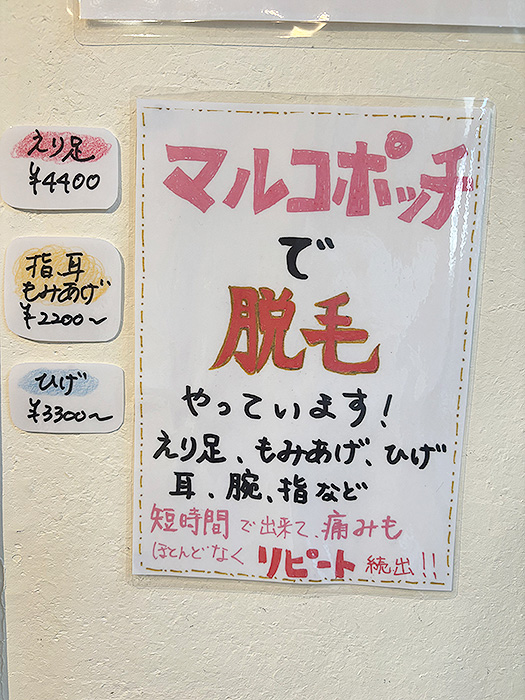 えり足
¥4400
指耳
もみあげ
¥2200～
ひげ
¥3300～
マルコポッチ
で
脱毛
やっています!
えり足、もみあげ、ひげ
耳、腕、指など
短時間で出来て、痛みも
ほとんどなくリピート続出!!